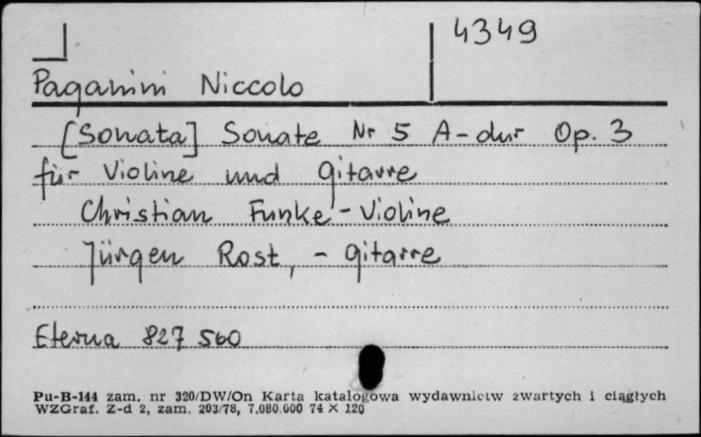 4349
Paganini Niccolo
[Sonata] Sonate Nr 5 A-dur Op. 3
für Violine und gitarre
Christian Funke - Violine
Jürgen Rost, - gitarre
Eterna 827 560
Pu-B-144 zam. nr 320/DW/On Karta katalogowa wydawnictw zwartych i ciągłych
WZGraf. Z-d 2, zam. 203/78, 7.080.000 74 × 120